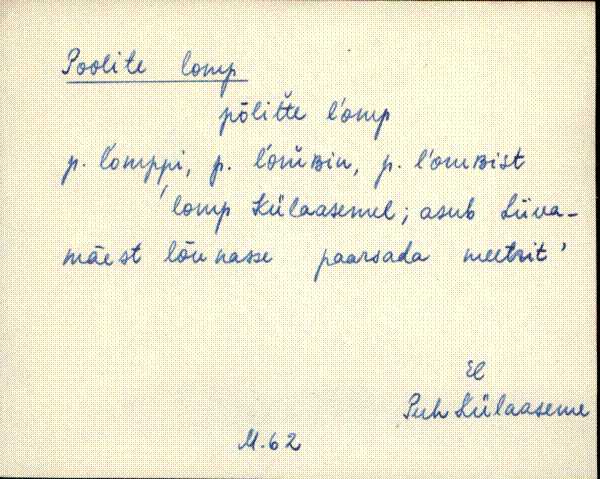 Poolite lomp
pōlit̆te l'omp
p. l'omppi, p. l'om̆ʙin, p. l'omʙist
'lomp Külaasemel; asub Liiva-
mäest lõunasse paarsada meetrit'
El
Puh Külaaseme
M.62